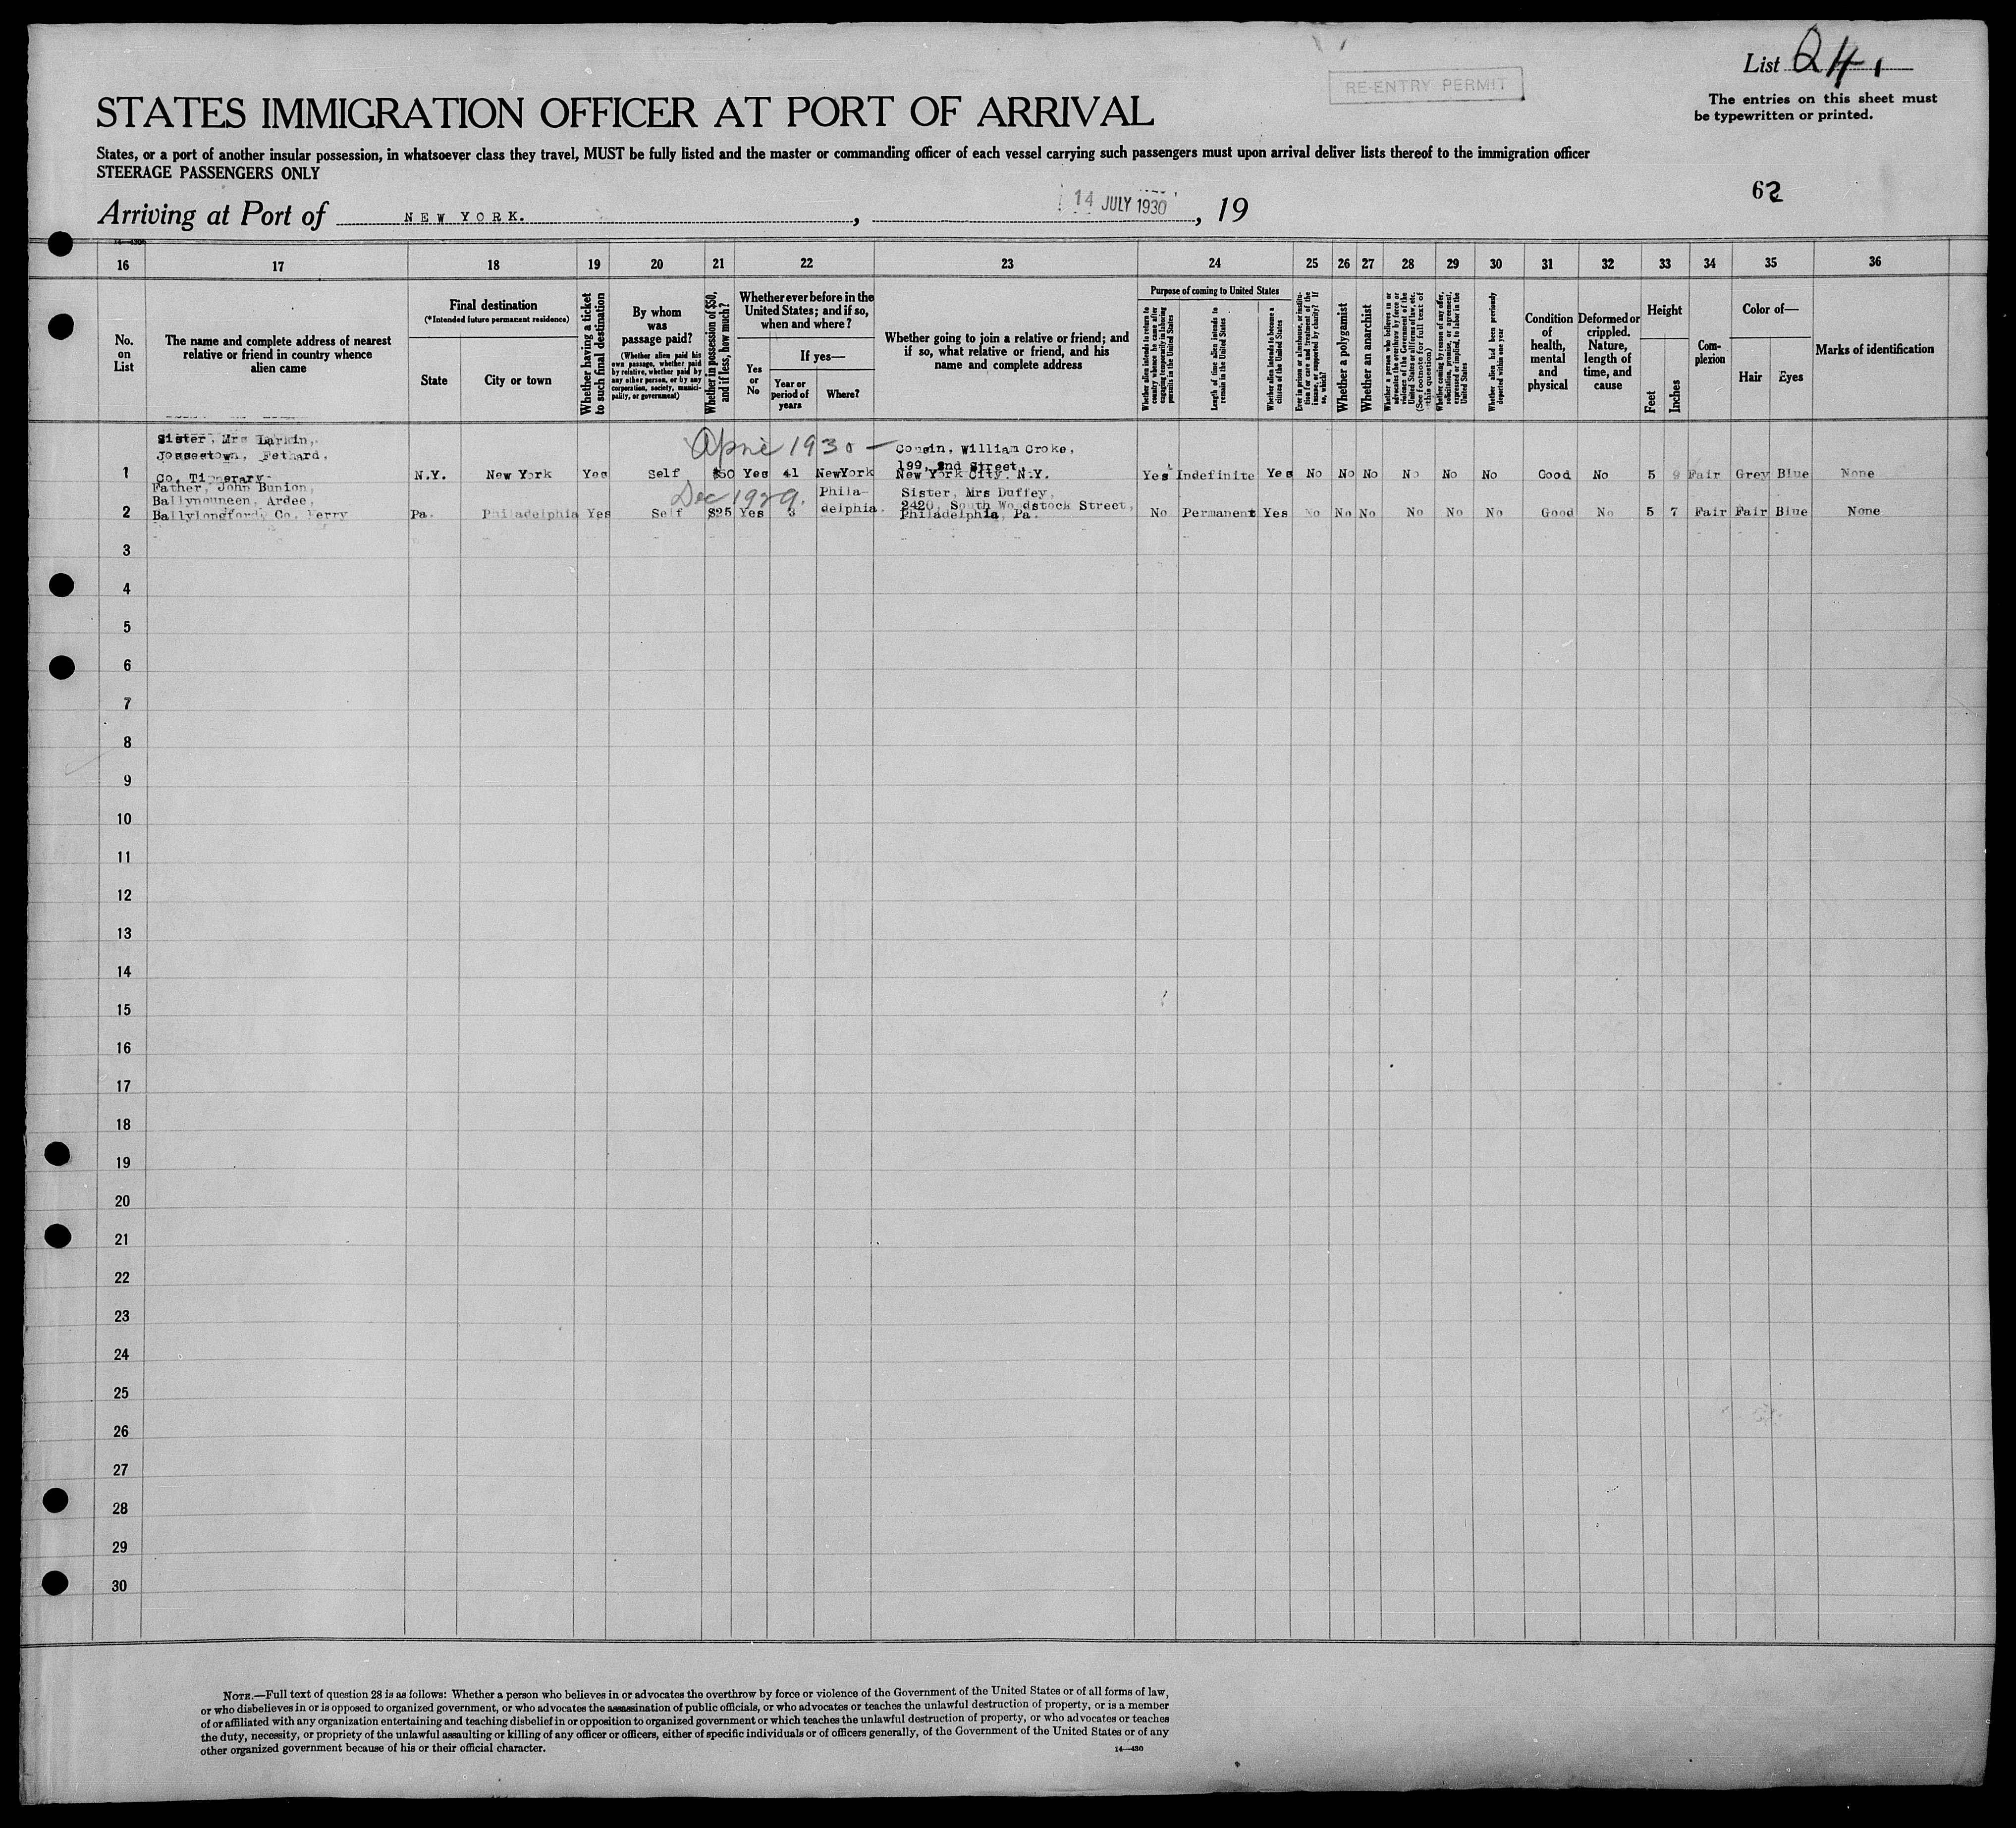 List 24
RE-ENTRY PERMIT
The entries on this sheet must
be typewritten or printed.
STATES IMMIGRATION OFFICER AT PORT OF ARRIVAL
States, or a port of another insular possession, in whatsoever class they travel, MUST be fully listed and the master or commanding officer of each vessel carrying such passengers must upon arrival deliver lists thereof to the immigration officer
STEERAGE PASSENGERS ONLY
62
Arriving at Port of NEW YORK. , 14 JULY 1930 , 19
16 17 18 19 20 21 22 23 24 25 26 27 28 29 30 31 32 33 34 35 36
No.
on
List
The name and complete address of nearest
relative or friend in country whence
alien came
Final destination
(*Intended future permanent residence)
State
City or town
Whether having a ticket
to such final destination
By whom
was
passage paid?
(Whether alien paid his
own passage, whether paid
by relative, whether paid by
any other person, or by any
corporation, society, munici-
pality, or government)
Whether in possession of $50,
and if less, how much?
Whether ever before in the
United States; and if so,
when and where?
Yes
or
No
If yes—
Year or
period of
years
Where?
Whether going to join a relative or friend; and
if so, what relative or friend, and his
name and complete address
Purpose of coming to United States
Whether alien intends to return to
country whence he came after
engaging temporarily in laboring
pursuits in the United States
Length of time alien intends to
remain in the United States
Whether alien intends to become a
citizen of the United States
Ever in prison or almshouse, or institu-
tion for care and treatment of the
insane, or supported by charity? If
so, which?
Whether a polygamist
Whether an anarchist
Whether a person who believes in or
advocates the overthrow by force or
violence of the Government of the
United States or all forms of law, etc.
(See footnote for full text of
this question)
Whether coming by reason of any offer,
solicitation, promise, or agreement,
expressed or implied, to labor in the
United States
Whether alien had been previously
deported within one year
Condition
of
health,
mental
and
physical
Deformed or
crippled.
Nature,
length of
time, and
cause
Height
Feet
Inches
Com-
plexion
Color of—
Hair
Eyes
Marks of identification
Sister, Mrs Larkin,
Jossestown, Fethard,
Co. Tipperary.
April 1930 —
Cousin, William Croke,
199, 2nd Street,
New York City. N.Y.
1 N.Y. New York Yes Self $50 Yes 41 NewYork Yes Indefinite Yes No No No No No No Good No 5 9 Fair Grey Blue None
Father, John Bunion,
Ballynouneen, Ardee,
Ballylongford, Co. Kerry
Dec 1929.
Phila-
delphia.
Sister, Mrs Duffey,
2420, South Woodstock Street,
Philadelphia, Pa.
2 Pa. Philadelphia Yes Self $25 Yes 3 No Permanent Yes No No No No No No Good No 5 7 Fair Fair Blue None
3
4
5
6
7
8
9
10
11
12
13
14
15
16
17
18
19
20
21
22
23
24
25
26
27
28
29
30
NOTE.—Full text of question 28 is as follows: Whether a person who believes in or advocates the overthrow by force or violence of the Government of the United States or of all forms of law,
or who disbelieves in or is opposed to organized government, or who advocates the assassination of public officials, or who advocates or teaches the unlawful destruction of property, or is a member
of or affiliated with any organization entertaining and teaching disbelief in or opposition to organized government or which teaches the unlawful destruction of property, or who advocates or teaches
the duty, necessity, or propriety of the unlawful assaulting or killing of any officer or officers, either of specific individuals or of officers generally, of the Government of the United States or of any
other organized government because of his or their official character.
14—430